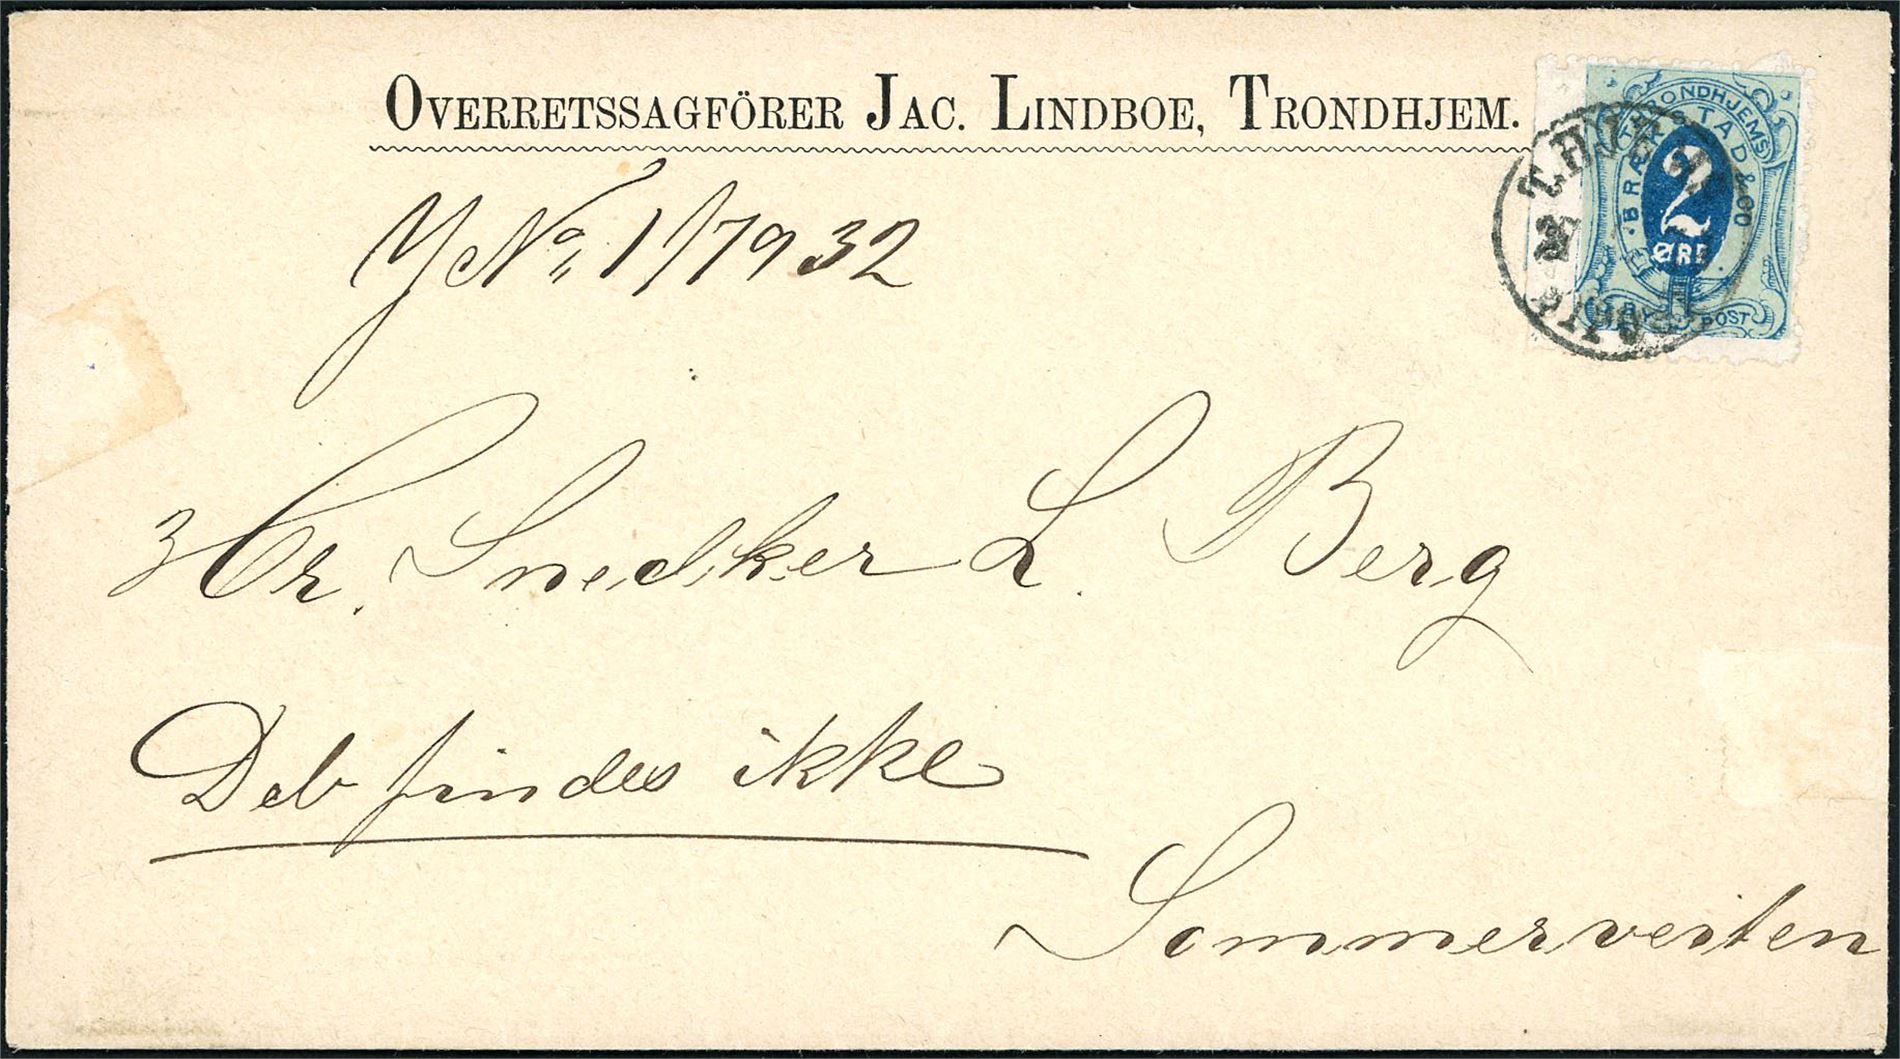 OVERRETSSAGFÖRER JAC. LINDBOE, TRONDHJEM.
No 1/7932
TRONDHJEMS
BRÆKSTAD & CO
2
ØRE
BY POST
Hr. Snedker L. Berg
Deb findes ikke
Sommerveiten